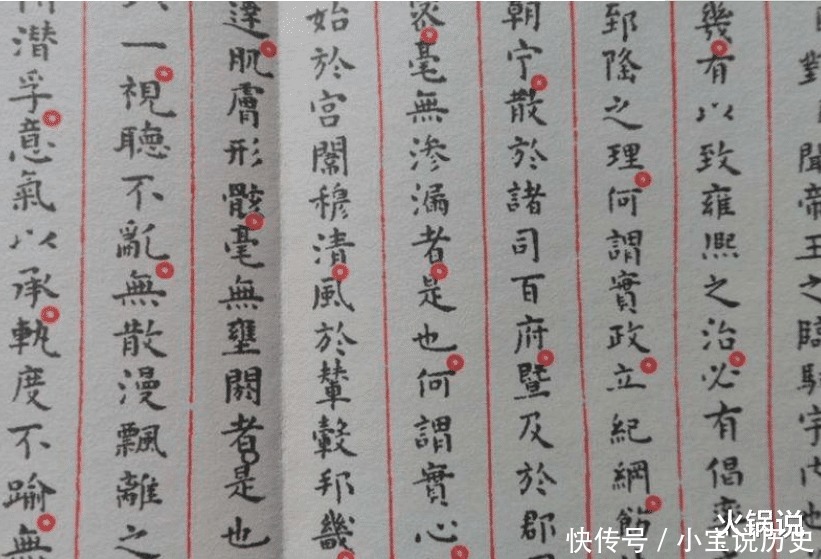 聞帝王之臨馭宇内也
幾有以致雍熙之治必有倡
郅隆之理何謂實政立紀綱飭
朝宁散於諸司百府暨及於郡
毫無滲漏者是也何謂實心
始於宮闈穆清風於輦轂邦畿
達肌膚形骸毫無壅閼者是也
一視聽不亂無散漫飄離之
潛孚意氣以承執度不踰無
火锅说
快传号／小宝说历史